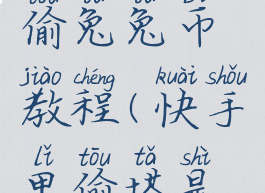 偷兔兔币
jiào chéng kuài shǒu
教程(快手
lǐ tōu tǎ shì
里偷塔是